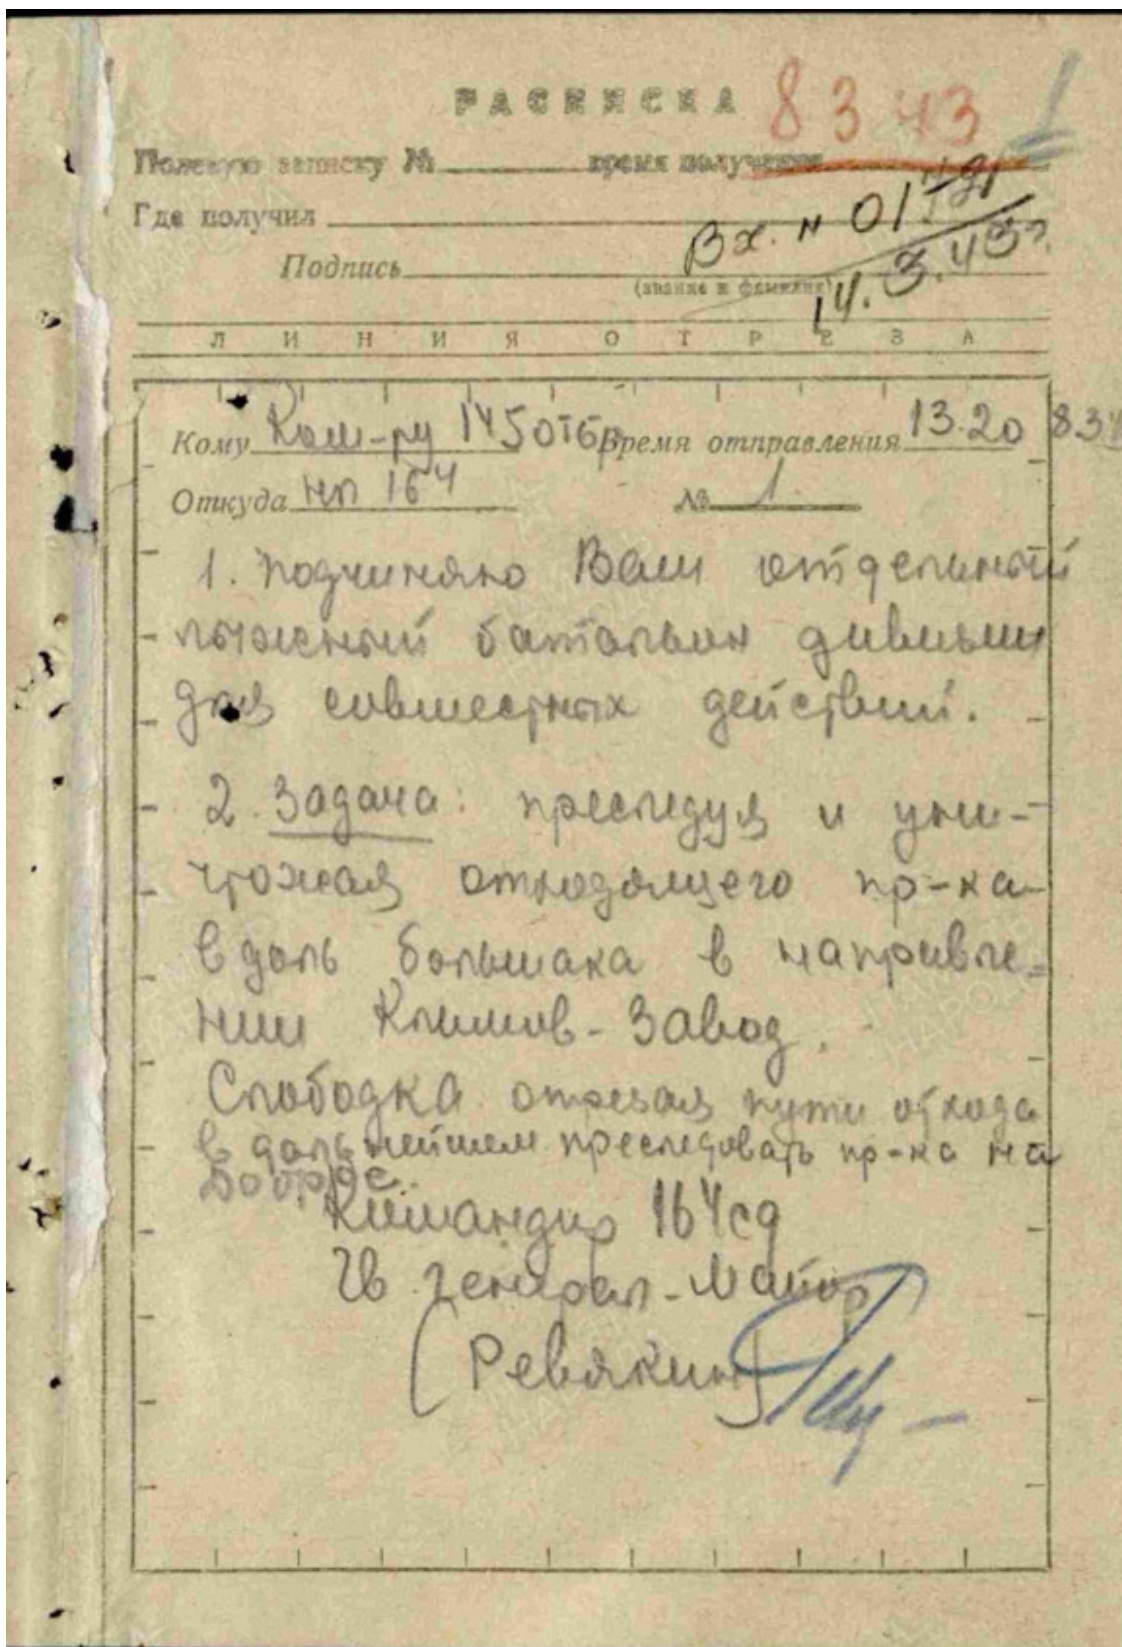 РАСПИСКА
8 3 43
Полевую записку № время получения
Где получил
Вх. н 01
14.3.43г.
Подпись
(звание и фамилия)
ЛИНИЯ ОТРЕЗА
Кому Ком-ру 145 отбр Время отправления 13.20 8.3
Откуда нп 164 № 1.
1. Подчиняю Вам отдельный
лыжный батальон дивизии
для совместных действий.
2. Задача: преследуя и уни-
чтожая отходящего пр-ка
вдоль большака в направле-
нии Климов-Завод.
Слободка отрезая пути отхода
в дальнейшем преследовать пр-ка на
Командир 164 сд
Гв генерал-майор
(Ревякин)